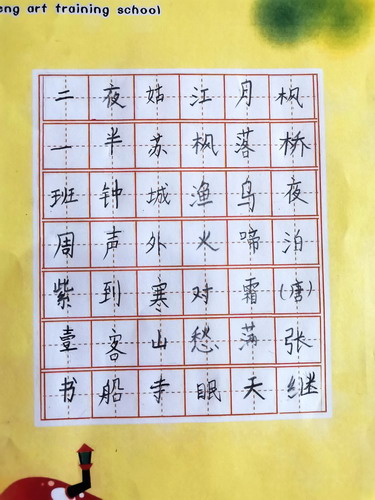 eng art training school
枫桥夜泊(唐)张继
月落鸟啼霜满天
江枫渔火对愁眠
姑苏城外寒山寺
夜半钟声到客船
二一班周紫壹书